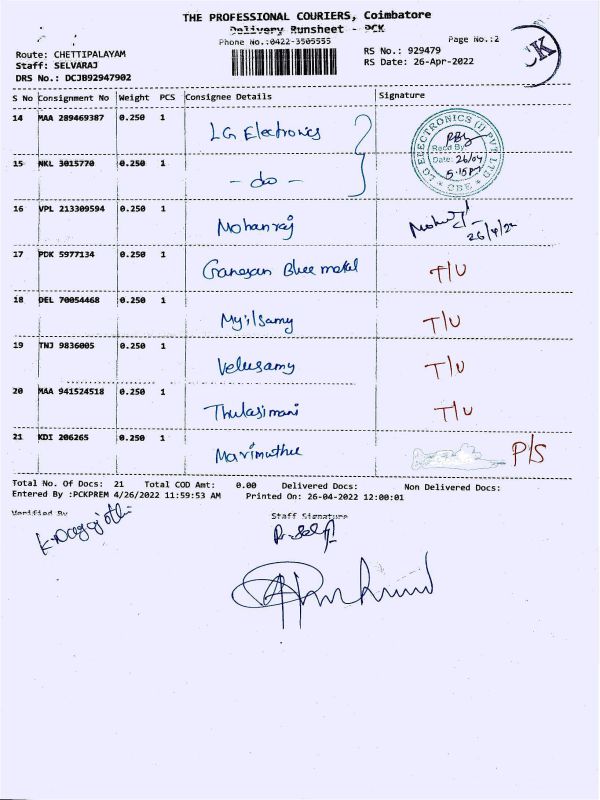 THE PROFESSIONAL COURIERS, Coimbatore
Delivery Runsheet - PCK
Phone No.:0422-3505555
Page No.:2
Route: CHETTIPALAYAM
RS No.: 929479
Staff: SELVARAJ
RS Date: 26-Apr-2022
DRS No.: DCJB92947902
S No Consignment No Weight PCS Consignee Details Signature
14 MAA 289469387 0.250 1 LG Electronics
ELECTRONICS (I) PVT LTD
Recd By
Date: 26/04
5.15
CBE
15 NKL 3015770 0.250 1 - do -
16 VPL 213309594 0.250 1 Mohanraj
26/4/22
17 PDK 5977134 0.250 1 Ganesan Bhee metal T/U
18 DEL 70054468 0.250 1 Myilsamy T/U
19 TNJ 9836005 0.250 1 Velusamy T/U
20 MAA 941524518 0.250 1 Thulasimani T/U
21 KDI 206265 0.250 1 Marimuthu P/S
Total No. Of Docs: 21 Total COD Amt: 0.00 Delivered Docs: Non Delivered Docs:
Entered By :PCKPREM 4/26/2022 11:59:53 AM Printed On: 26-04-2022 12:00:01
Verified By Staff Signature